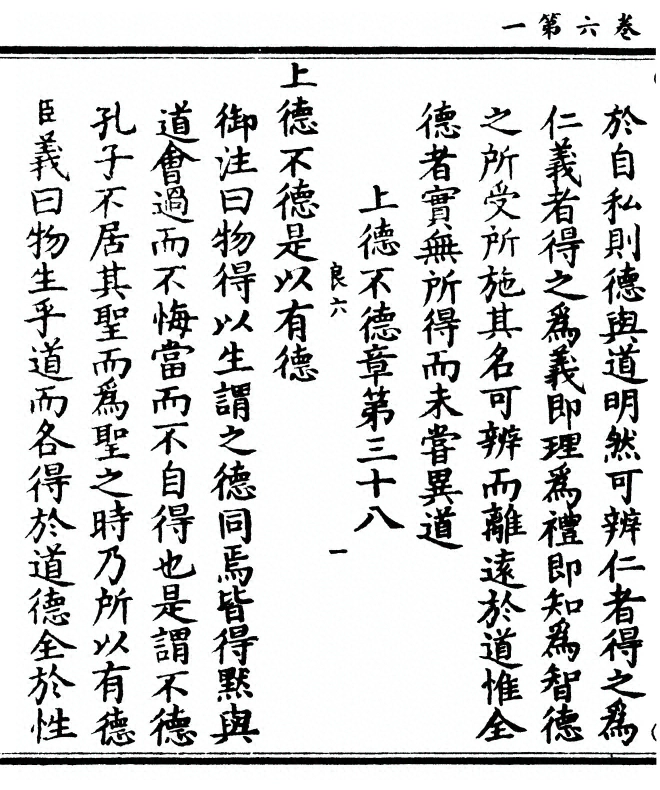 卷六第一
於自私則德與道明然可辨仁者得之爲
仁義者得之爲義即理爲禮即知爲智德
之所受所施其名可辨而離遠於道惟全
德者實無所得而未嘗異道
上德不德章第三十八
良六
一
上德不德是以有德
御注曰物得以生謂之德同焉皆得默與
道會過而不悔當而不自得也是謂不德
孔子不居其聖而爲聖之時乃所以有德
臣義曰物生乎道而各得於道德全於性